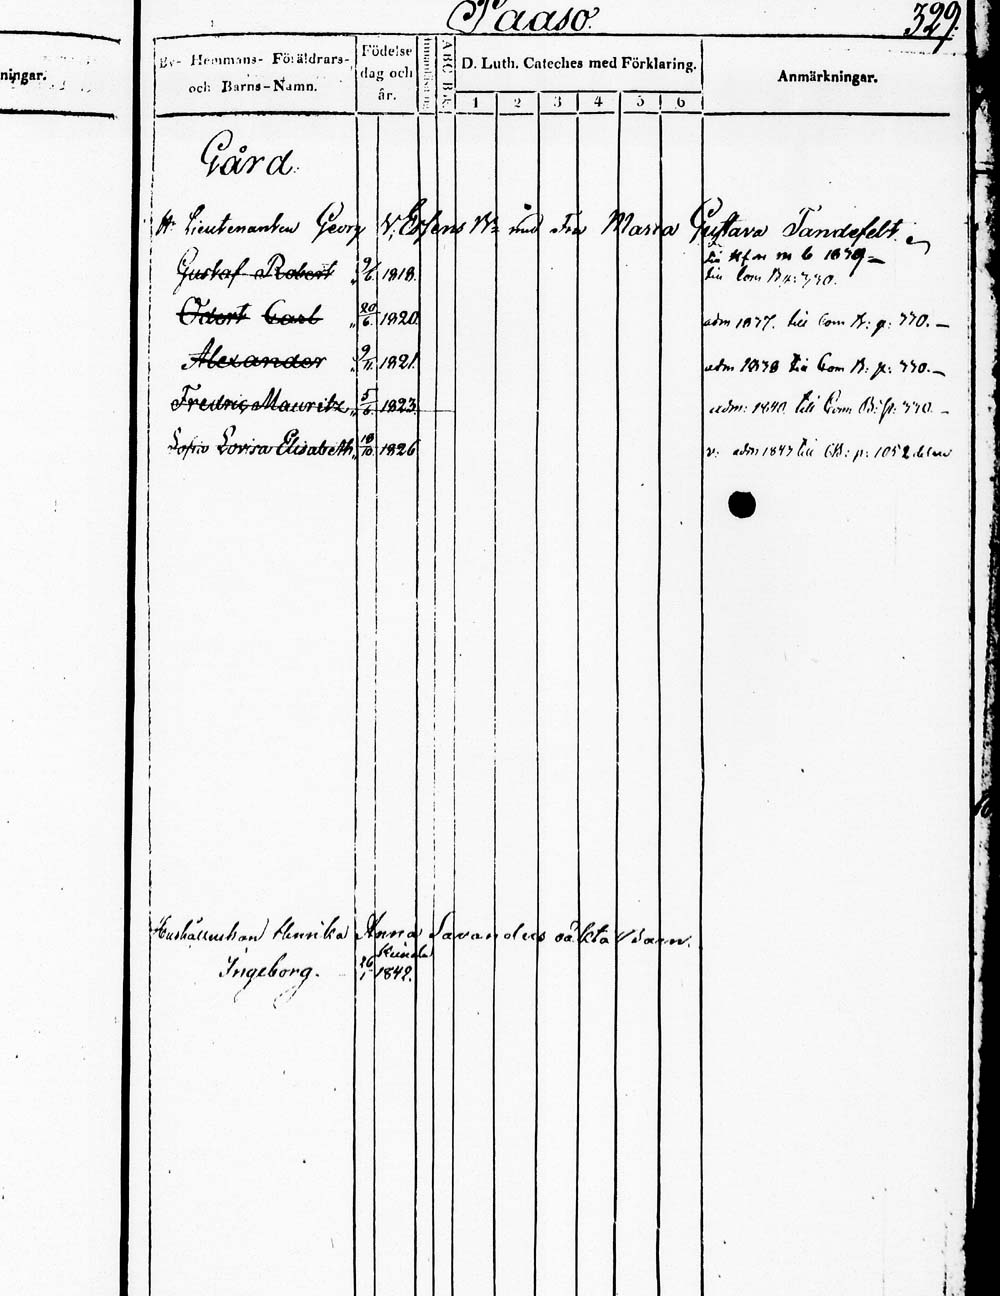 Paaso.
329.
ningar.
By- Hemmans- Föräldrars- och Barns-Namn.
Födelse dag och år.
Innanläsning
ABC Bok
D. Luth. Cateches med Förklaring.
1 2 3 4 5 6
Anmärkningar.
Gård.
Lieutenanten Georg V. Essens Bn med Fru Maria Gustava Tandefelt.
Gustaf Robert 9/6 1818.
till Com B. p: 770.
Odert Carl 20/6 1820. adm 1837. till Com B: p: 770.
Alexander 9/11 1821. adm 1838 till Com B: p: 770.
Fredric Mauritz 5/6 1823. adm: 1840 till Com B: p: 770.
Sofia Lovisa Elisabeth 18/10 1826 v: adm 1843 till CB: p: 1052
Hushållerskan Henrika Anna Savanders oäkta barn.
Ingeborg. 26/1 1842.